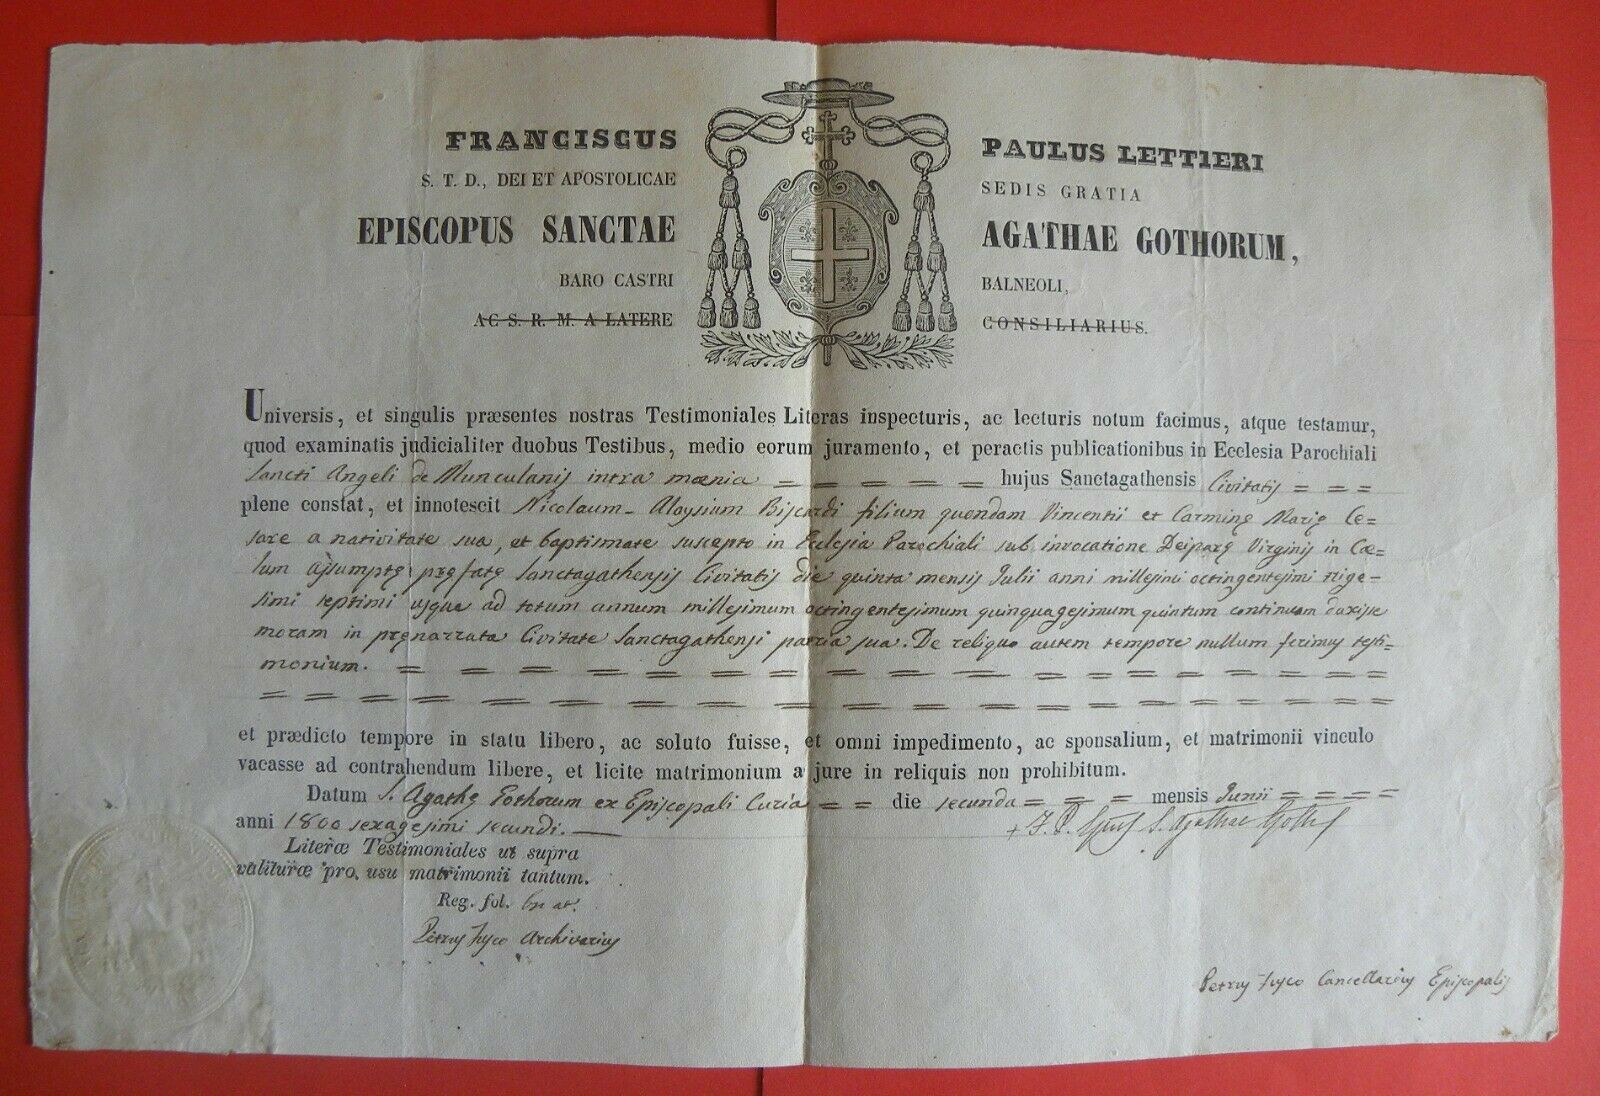 FRANCISCUS PAULUS LETTIERI
S. T. D., DEI ET APOSTOLICAE SEDIS GRATIA
EPISCOPUS SANCTAE AGATHAE GOTHORUM,
BARO CASTRI BALNEOLI,
AC S. R. M. A LATERE CONSILIARIUS.
Universis, et singulis præsentes nostras Testimoniales Literas inspecturis, ac lecturis notum facimus, atque testamur,
quod examinatis judicialiter duobus Testibus, medio eorum juramento, et peractis publicationibus in Ecclesia Parochiali
Sancti Angeli de Munculanis intra mœnia = = = = = hujus Sanctagathensis Civitatis = = =
plene constat, et innotescit Nicolaum-Aloysium Biscardi filium quondam Vincentii et Carminę Marię Ce=
sare a nativitate sua, et baptismate suscepto in Ecclesia Parochiali sub invocatione Deiparę Virginis in Cœ=
lum Assumptę pręfatę Sanctagathensis Civitatis die quinta mensis Julii anni millesimi octingentesimi trige=
simi septimi usque ad totum annum millesimum octingentesimum quinquagesimum quintum continuam duxisse
moram in pręnarrata Civitate Sanctagathensi patria sua. De reliquo autem tempore nullum ferimus testi=
monium. = = = = = = = = = = = = = = =
= = = = = = = = = = = = = = = = =
et prædicto tempore in statu libero, ac soluto fuisse, et omni impedimento, ac sponsalium, et matrimonii vinculo
vacasse ad contrahendum libere, et licite matrimonium a jure in reliquis non prohibitum.
Datum S. Agathę Gothorum ex Episcopali Curia = = die secunda = = = mensis Junii = = = =
anni 1800 sexagesimi secundi. —
+ F. P. Epus S. Agathae Goth
Literæ Testimoniales ut supra
valituræ pro usu matrimonii tantum.
Reg. fol.
Petrus Fusco Archivarius
Petrus Fusco Cancellarius Episcopalis